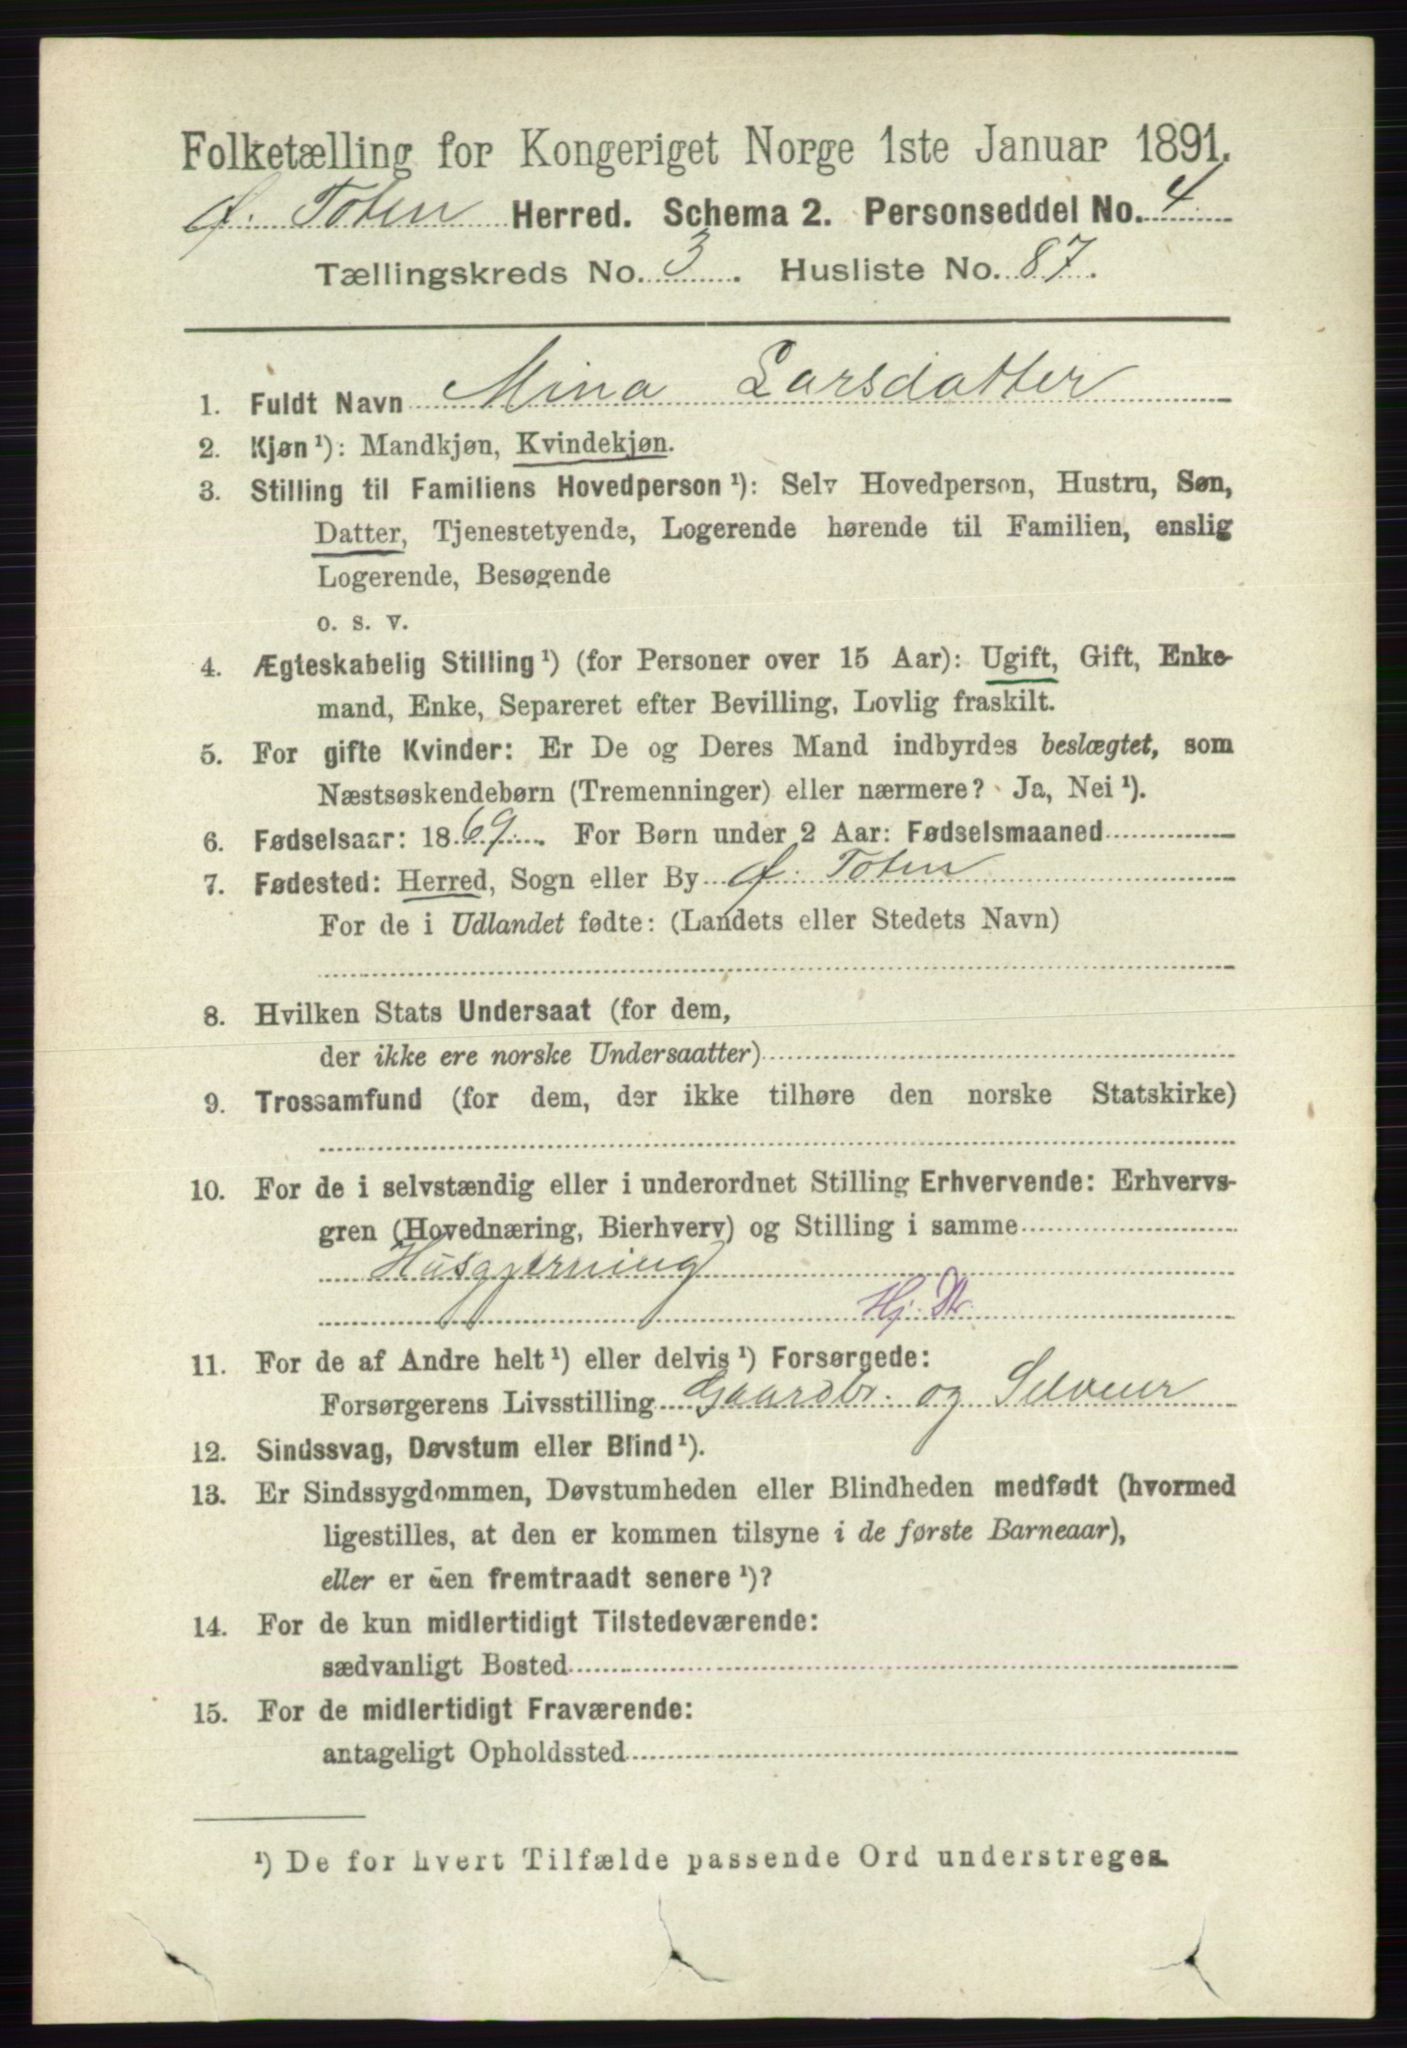 Folketælling for Kongeriget Norge 1ste Januar 1891.
Ø. Toten Herred. Schema 2. Personseddel No. 4
Tællingskreds No. 3. Husliste No. 87.
1. Fuldt Navn Mina Larsdatter
2. Kjøn ¹): Mandkjøn, Kvindekjøn.
3. Stilling til Familiens Hovedperson ¹): Selv Hovedperson, Hustru, Søn,
Datter, Tjenestetyende, Logerende hørende til Familien, enslig
Logerende, Besøgende
o. s. v.
4. Ægteskabelig Stilling ¹) (for Personer over 15 Aar): Ugift, Gift, Enke-
mand, Enke, Separeret efter Bevilling, Lovlig fraskilt.
5. For gifte Kvinder: Er De og Deres Mand indbyrdes beslægtet, som
Næstsøskendebørn (Tremenninger) eller nærmere? Ja, Nei ¹).
6. Fødselsaar: 1869. For Børn under 2 Aar: Fødselsmaaned
7. Fødested: Herred, Sogn eller By Ø. Toten
For de i Udlandet fødte: (Landets eller Stedets Navn)
8. Hvilken Stats Undersaat (for dem,
der ikke ere norske Undersaatter)
9. Trossamfund (for dem, der ikke tilhøre den norske Statskirke)
10. For de i selvstændig eller i underordnet Stilling Erhvervende: Erhvervs-
gren (Hovednæring, Bierhverv) og Stilling i samme
Husgjerning
Hj. Dtr.
11. For de af Andre helt ¹) eller delvis ¹) Forsørgede:
Forsørgerens Livsstilling Gaardbr. og Selveier
12. Sindssvag, Døvstum eller Blind ¹).
13. Er Sindssygdommen, Døvstumheden eller Blindheden medfødt (hvormed
ligestilles, at den er kommen tilsyne i de første Barneaar),
eller er den fremtraadt senere ¹)?
14. For de kun midlertidigt Tilstedeværende:
sædvanligt Bosted
15. For de midlertidigt Fraværende:
antageligt Opholdssted
¹) De for hvert Tilfælde passende Ord understreges.